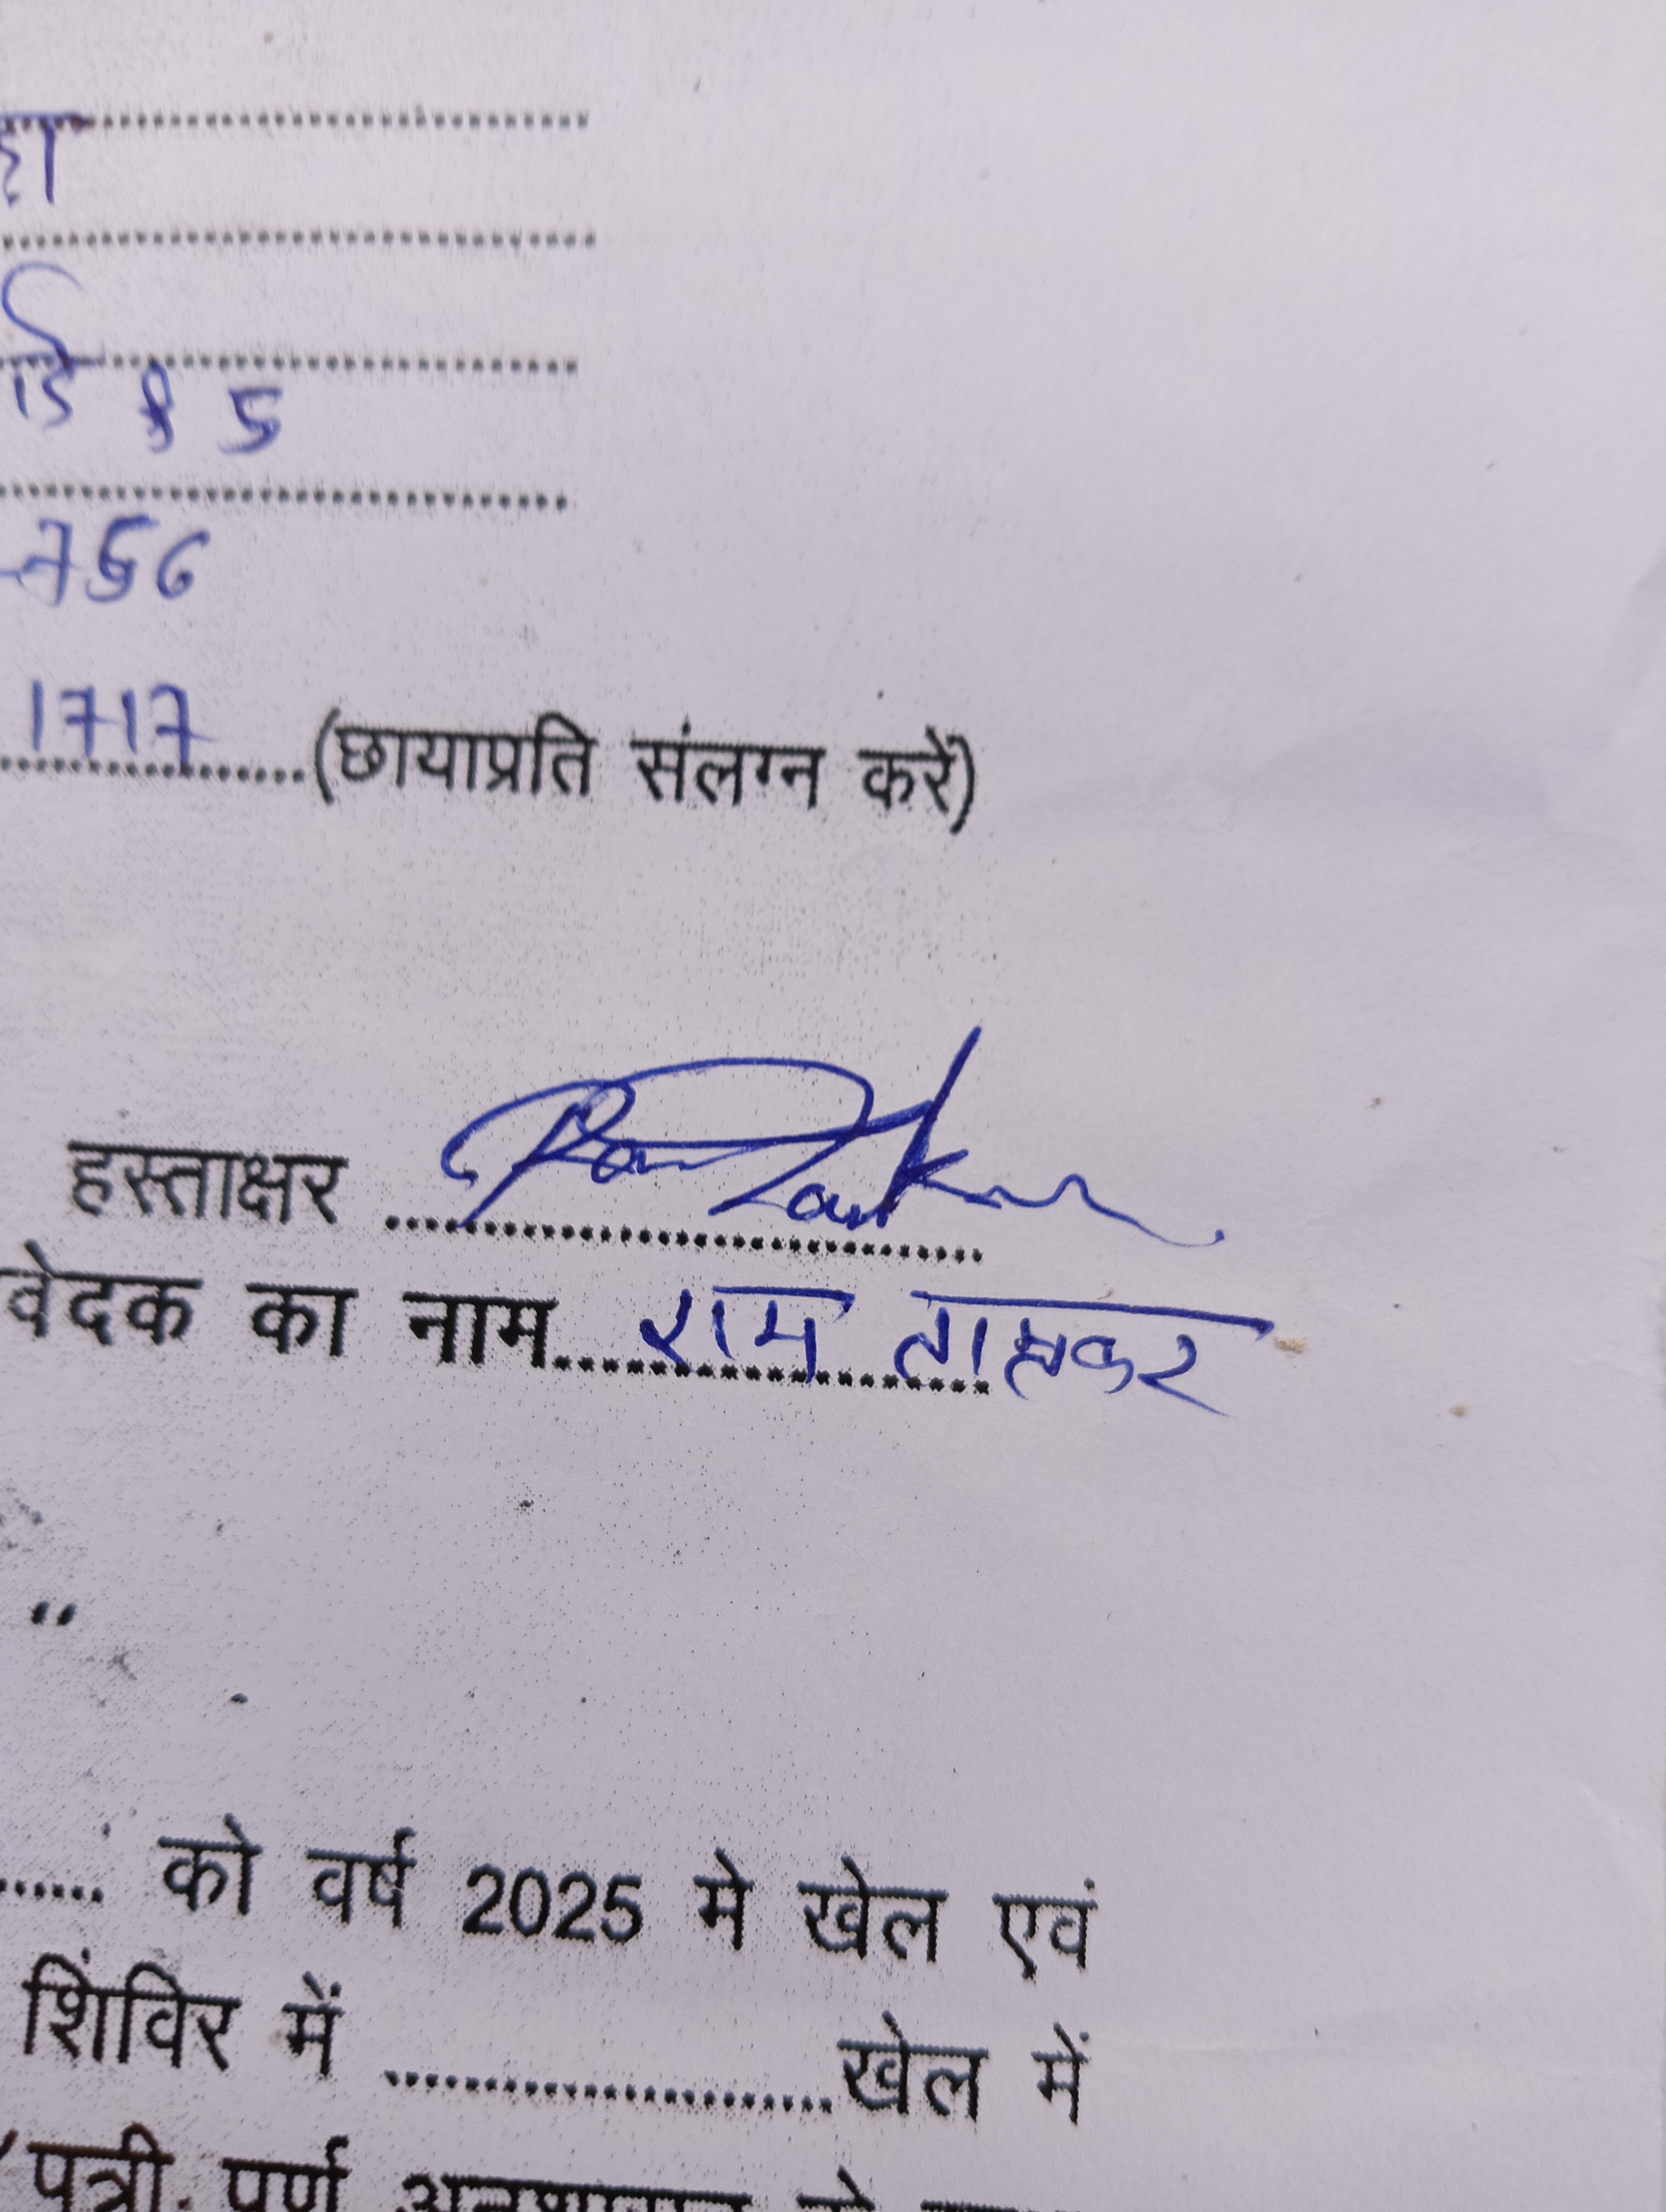 हा
र्ड 5
756
1717 (छायाप्रति संलग्न करें)
हस्ताक्षर
वेदक का नाम राम ताम्रकर
को वर्ष 2025 मे खेल एवं
शिंविर में खेल में
पुत्री पूर्ण